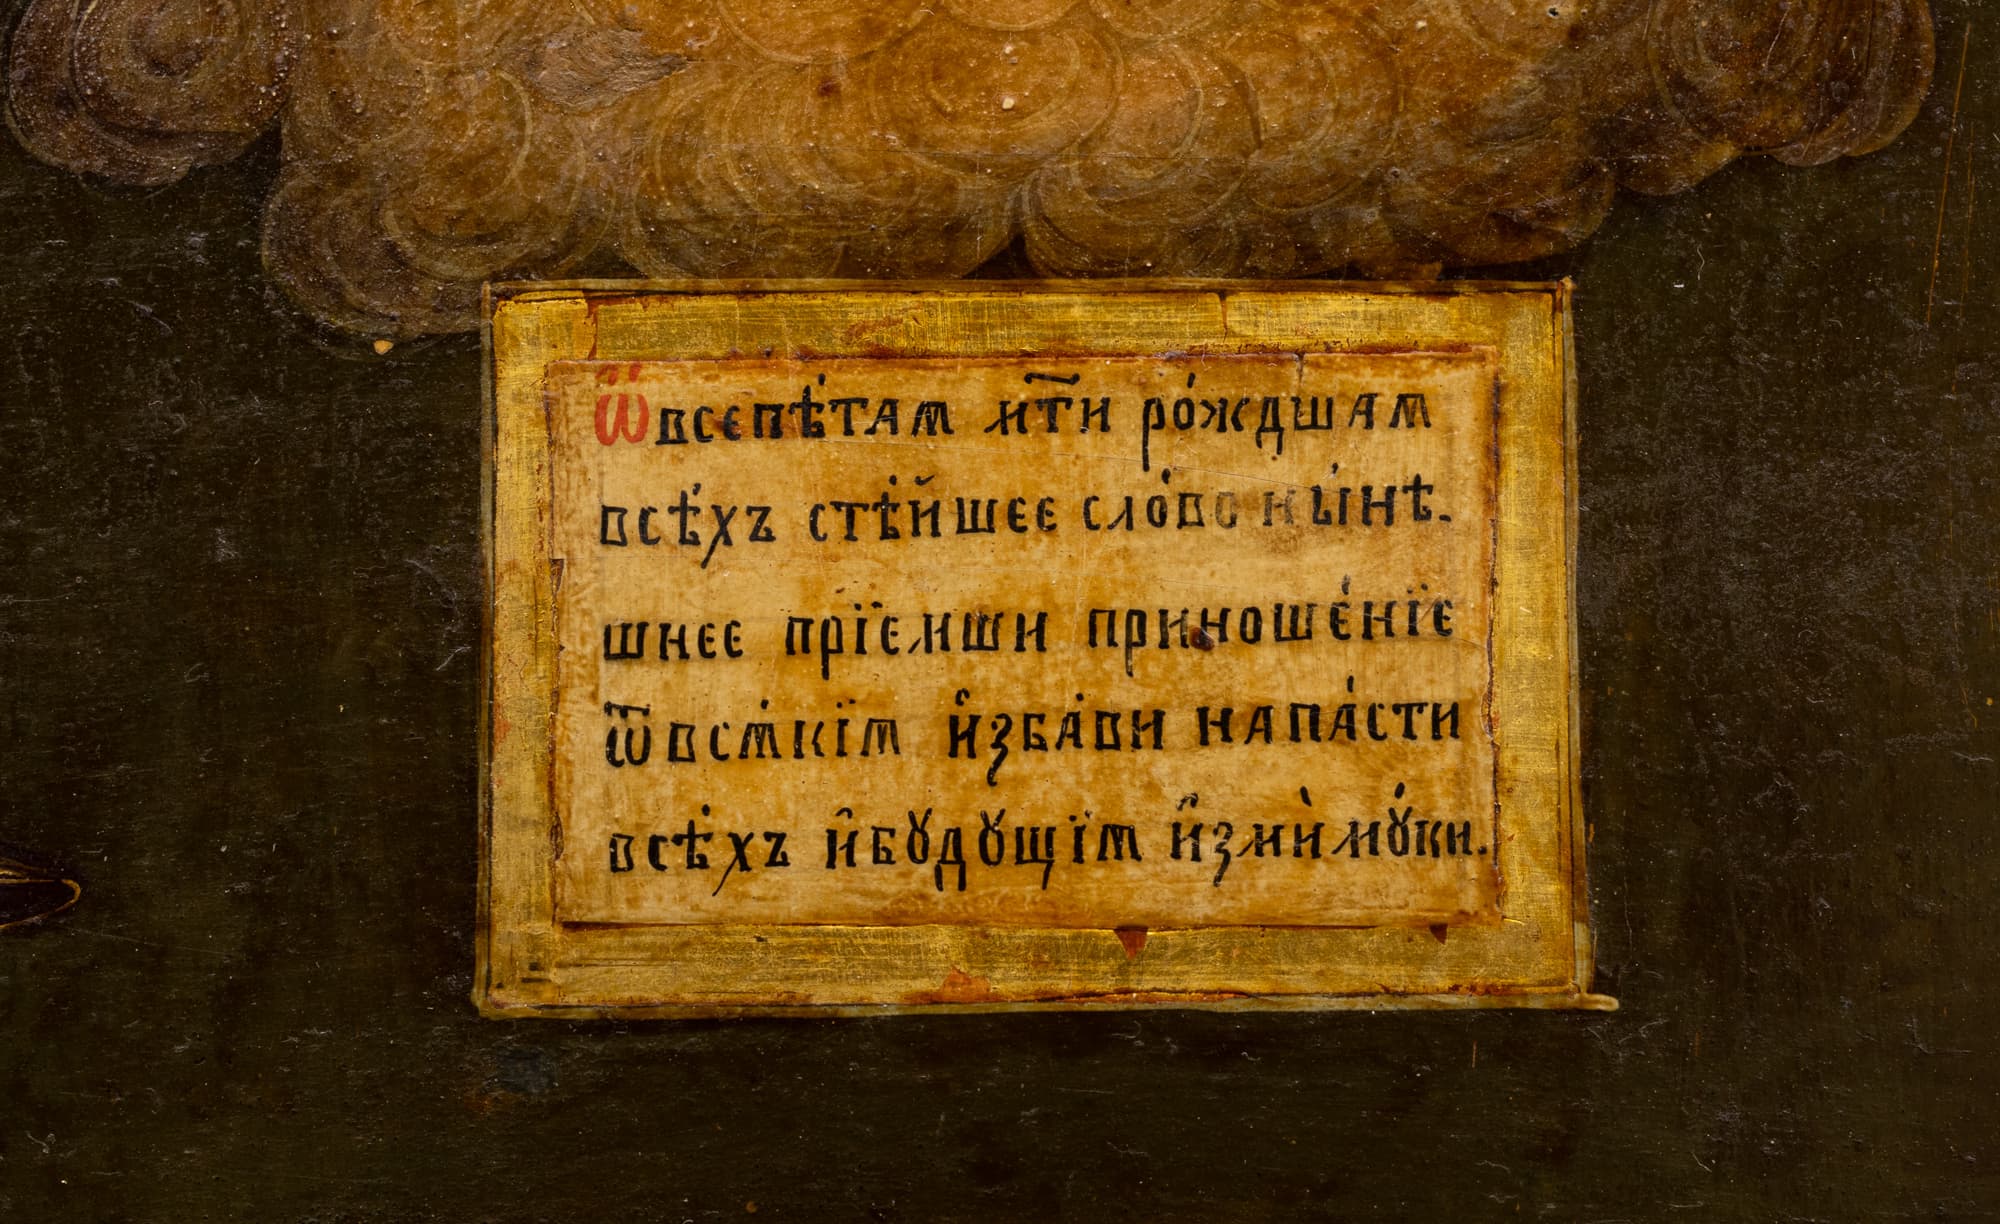 Ѽ всепѣ́таѧ мт҃и ро́ждшаѧ
всѣ́хъ стѣ́йшее сло́во ны́нѣ.
шнее прїемши приноше́нїе
ѿ всѧ́кїѧ и҆збави напа́сти
всѣ́хъ и҆ бꙋдꙋщїѧ и҆зми̇̀ мꙋ́ки.